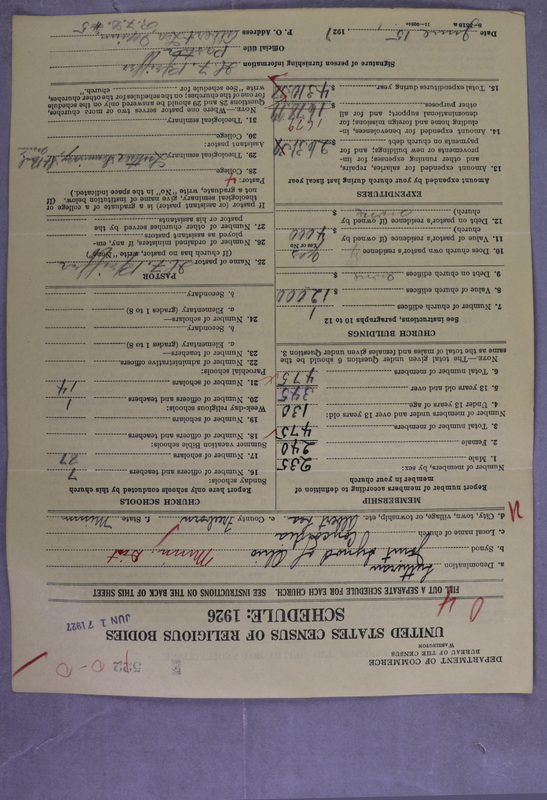 DEPARTMENT OF COMMERCE
BUREAU OF THE CENSUS
WASHINGTON
572 0-0
UNITED STATES CENSUS OF RELIGIOUS BODIES
SCHEDULE: 1926
JUN 17 1927
FILL OUT A SEPARATE SCHEDULE FOR EACH CHURCH. SEE INSTRUCTIONS ON THE BACK OF THIS SHEET
a. Denomination Lutheran
b. Synod Joint Synod of Ohio Minn. Dist
c. Local name of church Concordia
d. City, town, village, or township, etc. Albert Lea e. County Freeborn f. State Minn
MEMBERSHIP
Report number of members according to definition of member in your church
Number of members, by sex:
1. Male 235
2. Female 240
3. Total number of members 475
Number of members under and over 13 years old:
4. Under 13 years of age 130
5. 13 years old and over 345
6. Total number of members 475
NOTE.—The total given under Question 6 should be the same as the total of males and females given under Question 3.
CHURCH BUILDINGS
See instructions, paragraphs 10 to 12
7. Number of church edifices 1
8. Value of church edifices $ 12000
9. Debt on church edifices $ none
10. Does church own pastor's residence yes
(Yes or No)
11. Value of pastor's residence (if owned by church) $ 4000
12. Debt on pastor's residence (if owned by church) $ none
EXPENDITURES
Amount expended by your church during last fiscal year
13. Amount expended for salaries, repairs, and other running expenses; for improvements or new buildings; for payments on church debt
14. Amount expended for benevolences, including home and foreign missions; for denominational support; and for all other purposes
15. Total expenditures during year
CHURCH SCHOOLS
Report here only schools conducted by this church
Sunday schools:
16. Number of officers and teachers 7
17. Number of scholars 27
Summer vacation Bible schools:
18. Number of officers and teachers
19. Number of scholars
Week-day religious schools:
20. Number of officers and teachers 1
21. Number of scholars 14
Parochial schools:
22. Number of administrative officers
23. Number of teachers—
a. Elementary (grades 1 to 8)
b. Secondary
24. Number of scholars—
a. Elementary (grades 1 to 8)
b. Secondary
PASTOR
25. Name of pastor
(If church has no pastor, write "None")
26. Number of ordained ministers, if any, employed as assistant pastors
27. Number of other churches served by the pastor or his assistants
If pastor (or assistant pastor) is a graduate of a college or theological seminary, give name of institution below. (If not a graduate, write "No" in the space indicated.)
Pastor:
28. College
29. Theological seminary
Assistant pastor:
30. College
31. Theological seminary
NOTE.—Where one pastor serves two or more churches, Questions 28 and 29 should be answered only on the schedule for one of the churches; on the schedules for the other churches, write "See schedule for church."
Signature of person furnishing information
Official title Pastor
P. O. Address Albert Lea, Minn
R.F.D. #5
Date June 15, 1927